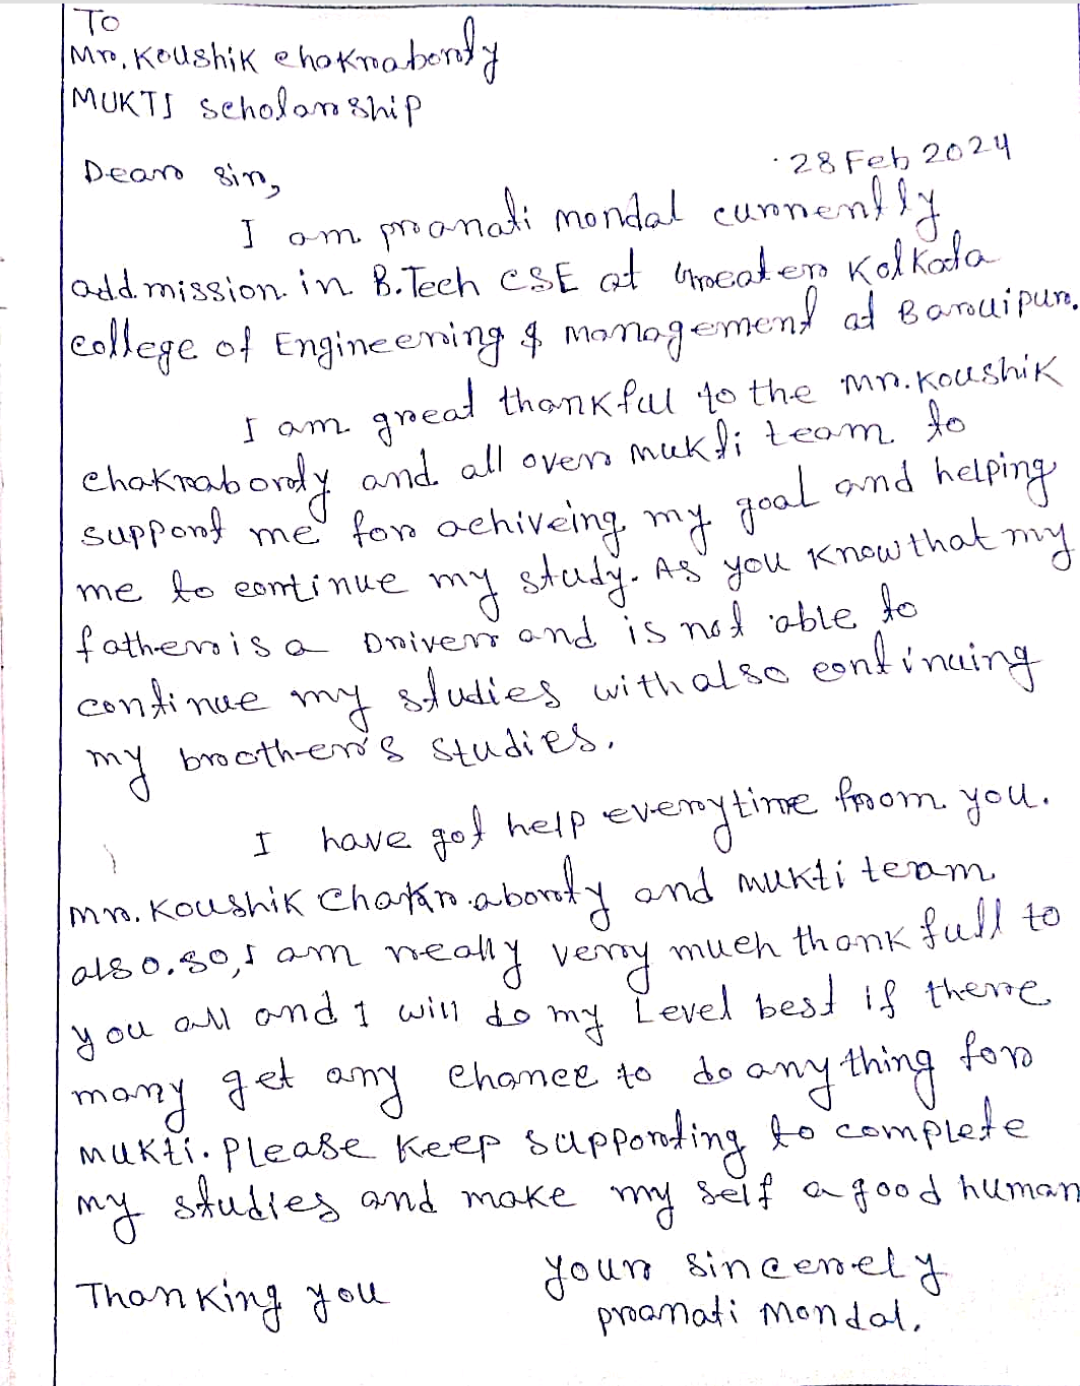 To
Mr. Koushik chakraborty
MUKTI scholarship
28 Feb 2024
Dear sir,
I am pranati mondal currently
addmission in B.Tech CSE at Greater Kolkata
college of Engineering & management at Baruipur.
I am great thankful to the mr. Koushik
chakraborty and all over mukti team to
support me for achiveing my goal and helping
me to continue my study. As you know that my
father is a Driver and is not able to
continue my studies with also continuing
my brother's studies.
I have got help everytime from you.
mr. Koushik Chakraborty and mukti team
also. so, I am really very much thankfull to
you all and I will do my Level best if there
many get any chance to do anything for
mukti. Please keep supporting to complete
my studies and make my self a good human
Thanking you
your sincerely
pranati Mondal.